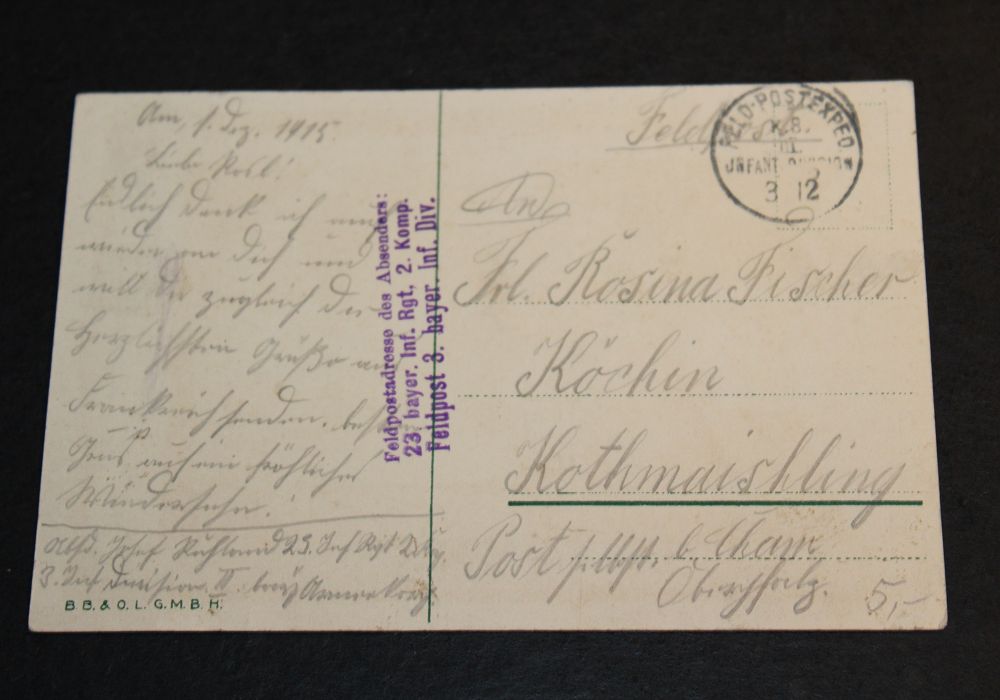 Am, 1. Dez. 1915.
Liebe Rosl!
Endlich denk ich auch
wieder an Dich und
will Dir zugleich die
Herzlichsten Grüße aus
Frankreich senden. besten
Grus auf ein fröhliches
Wiedersehn!
Abs. Josef Ruhland 23. Inf Rgt 2. Kp.
3. Inf Division II. bayr Armeekorps
B.B. & O.L. G.M.B.H.
Feldpostadresse des Absenders:
23. bayer. Inf. Rgt, 2. Komp.
Feldpost 3. bayer. Inf. Div.
Feldpost
FELD-POSTEXPED
K.B.
III.
INFANT. DIVISION
3 12
An
Frl. Rosina Fischer
Köchin
Kothmaißling
Post selbst b. Cham
Oberpfalz.
5,-